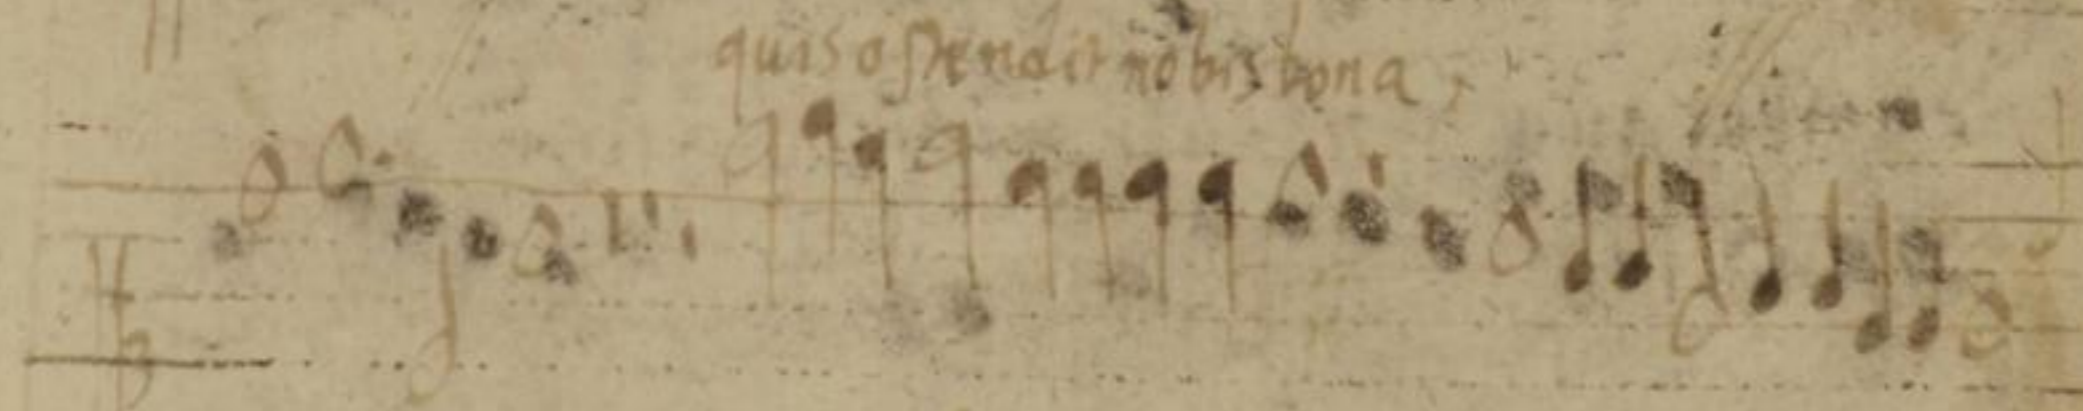 quis ostendit nobis bona,